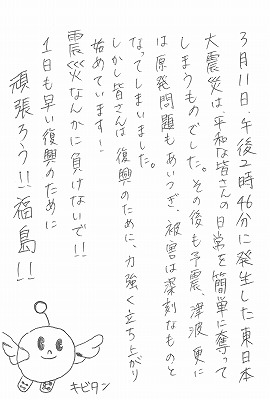 3月11日、午後2時46分に発生した東日本
大震災は、平和な皆さんの日常を簡単に奪って
しまうものでした。その後も予震、津波、更に
は原発問題もあいつぎ、被害は深刻なものと
なってしまいました。
しかし皆さんは復興のために、力強く立ち上がり
始めています！
震災なんかに負けないで!!
1日も早い復興のために
頑張ろう!!福島!!
キビタン